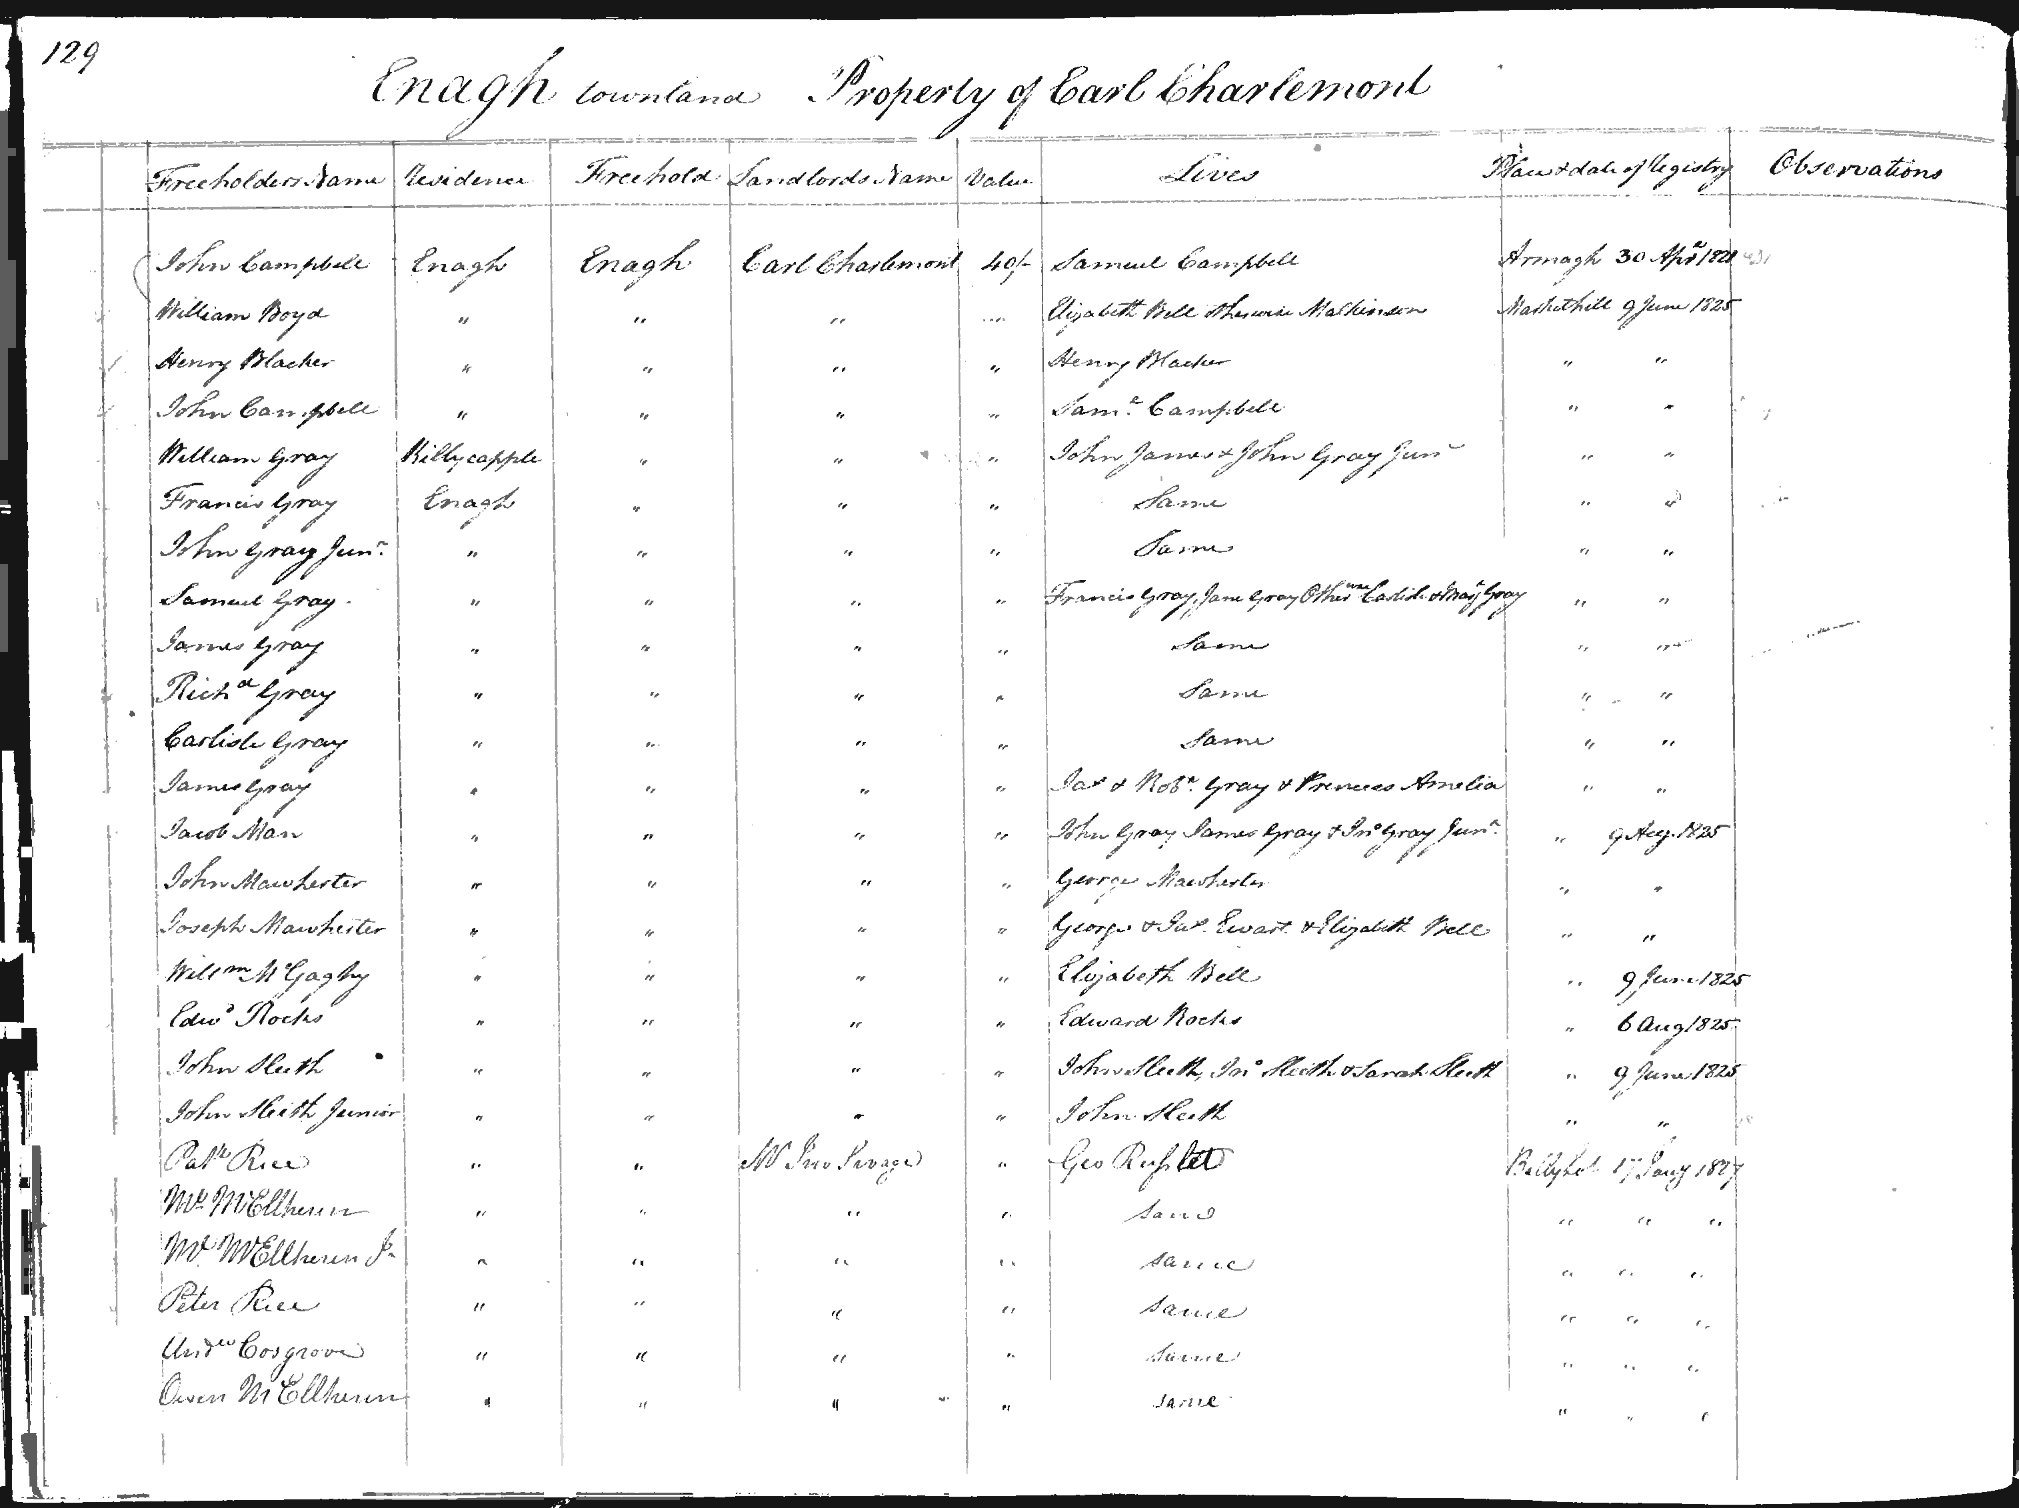 129
Enagh townland Property of Earl Charlemont
Freeholders Name Residence Freehold Landlords Name Value Lives Place & date of Registry Observations
John Campbell Enagh Enagh Earl Charlemont 40/- Samuel Campbell Armagh 30 Apr 1821
William Boyd " " " " Elizabeth Bell otherwise Markethill 9 June 1825
Henry Blacker " " " " Henry Blacker " "
John Campbell " " " " Sam.l Campbell " "
William Gray Killycapple " " " John James & John Gray Junr " "
Francis Gray Enagh " " " Same " "
John Gray Junr. " " " " Same " "
Samuel Gray " " " " Francis Gray, Jane Gray Otherwise Carlisle & Mary Gray " "
James Gray " " " " Same " "
Richd Gray " " " " Same " "
Carlisle Gray " " " " Same " "
James Gray " " " " Jas & Robt. Gray & Princess Amelia " "
Jacob Man " " " " John Gray James Gray & Jno Gray Junr. " 9 Aug. 1825
John Mawherter " " " " George Mawherter " "
Joseph Mawherter " " " " George & Jas. Ewart & Elizabeth Bell " "
Willm McGaghy " " " " Elizabeth Bell " 9 June 1825
Edwd Rocks " " " " Edward Rocks " 6 Aug 1825
John Sleith " " " " John Sleith, Jno Sleith & Sarah Sleith " 9 June 1825
John Sleith Junior " " " " John Sleith " "
Patk Rice " " Mr Jno Savage " Geo 17 Jany 1827
McEllheron " " " " same " " "
McEllheron Jr " " " " same " " "
Peter Rice " " " " same " " "
Andrew Cosgrove " " " " same " " "
Owen McEllheron " " " " same " " "